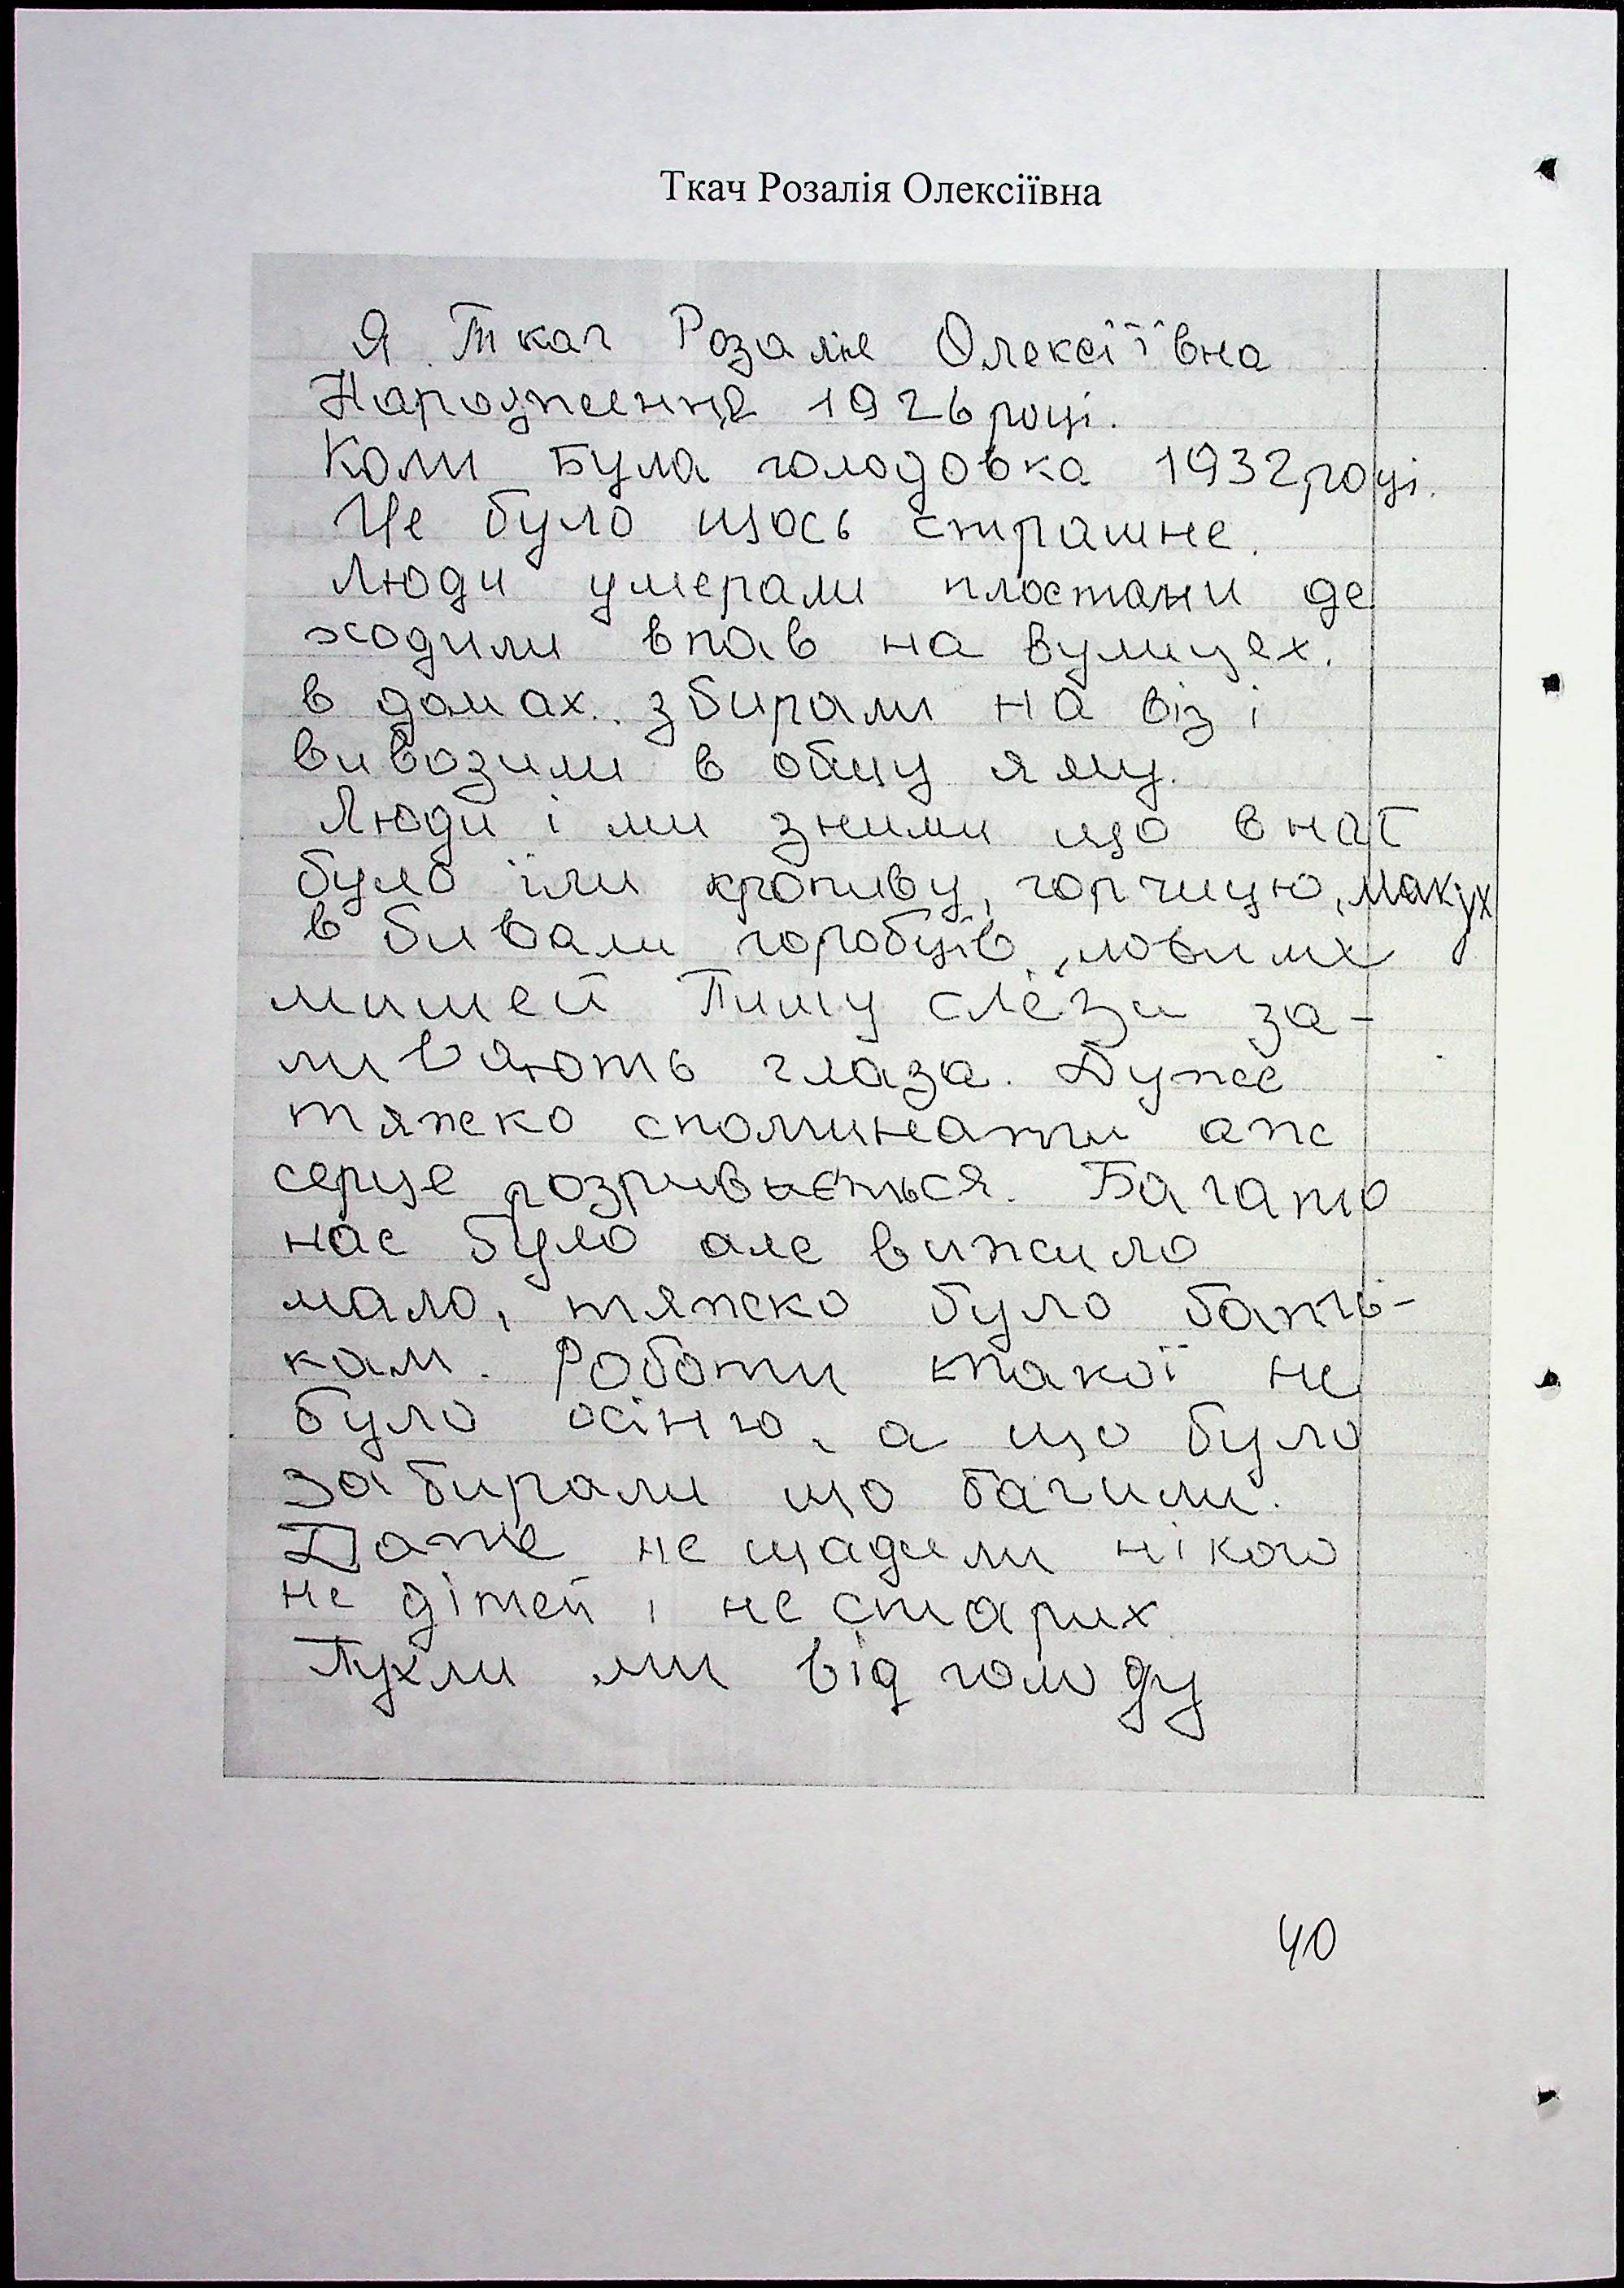 Ткач Розалія Олексіївна
Я Ткач Розалія Олексіївна
Народження 1926 році.
Коли Була голодовка 1932 році.
Це було щось страшне.
Люди умерали пластами де
ходили впав на вулицех.
в домах. збирали на віз і
вивозили в общу яму.
Люди і ми зними що в нас
було їли кропиву, горчицю, макух
в бивали горобців, ловили
мишей Пишу слёзи за-
ливають глаза. Дуже
тяжко споминати аж
серце розривається. Багато
нас було але вижило
мало, тяжко було бать-
кам. Роботи такої не
було осіню, а що було
забирали що бачили.
Даже не щадили нікого
не дітей і не старих
Пухли ми від голоду
40